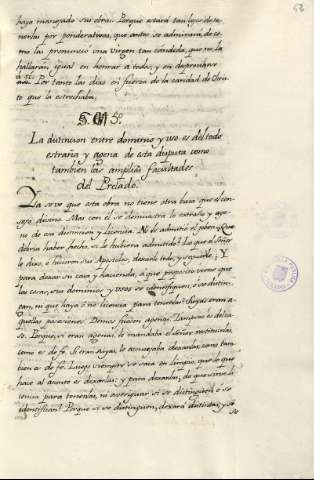 52
haya manejado su obra. Porque estará tan lejos de te-
nerlas por ponderativas, que antes se admirará de co-
mo las pronunció una Virgen tan cándida, que no la
hallarán igual en honrar a todos, y en despreciarse
a si. Por tanto las dixo en fuerza de la caridad de Chris-
to que la estrechaba.
§. 5º.
La distincion entre dominio y uso es del todo
estraña y agena de esta disputa como
tambien las amplias facultades
del Prelado.
Ya se ve que esta obra no tiene otra luz que el con-
sejo divino. Mas con él se demuestra lo estraño y age-
no de esa distincion y licencia. No lo admitió el joben. Que
debria haber hecho, si le hubiera admitido? Lo que el Señor
le dixo, e hicieron sus Apostoles, dexarlo todo, y seguirle. Y
para dexar su casa y hacienda, a que proposito viene que
las casas, sus dominios y usos se identifiquen, o se distin-
gan, ni que haya o no licencia para tenerlas? Suyas eran a-
quellas posesiones? Demos fuesen agenas. Tampoco es del ca-
so. Porque, si eran agenas, le mandaba el Señor restituirlas,
como es de fe. Si eran suyas, le aconsejaba dexarlas, como tam-
bien es de fe. Luego siempre se saca en limpio, que lo que
hace al asunto es dexarlas: y para dexarlas, de que sirve li-
cencia para tenerlas, ni averiguar si se distinguen o se
identifican? Porque si se distinguen, dexará distintas, y si
se